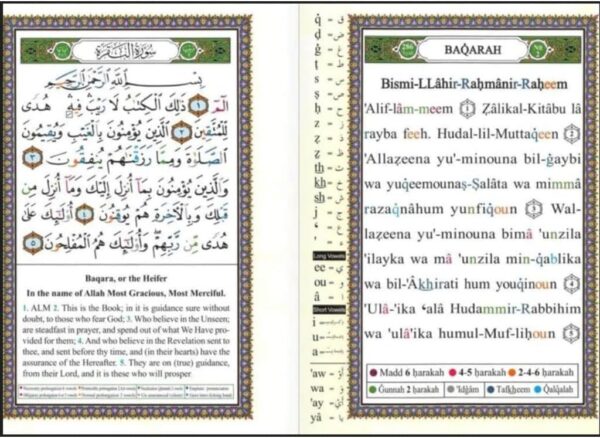 سورة البقرة
بِسْمِ اللَّهِ الرَّحْمَٰنِ الرَّحِيمِ
الٓمٓ ١ ذَٰلِكَ الْكِتَٰبُ لَا رَيْبَ فِيهِ هُدًى
لِّلْمُتَّقِينَ ٢ الَّذِينَ يُؤْمِنُونَ بِالْغَيْبِ وَيُقِيمُونَ
الصَّلَوٰةَ وَمِمَّا رَزَقْنَٰهُمْ يُنفِقُونَ ٣
وَالَّذِينَ يُؤْمِنُونَ بِمَآ أُنزِلَ إِلَيْكَ وَمَآ أُنزِلَ مِن
قَبْلِكَ وَبِالْآخِرَةِ هُمْ يُوقِنُونَ ٤ أُولَٰٓئِكَ عَلَىٰ
هُدًى مِّن رَّبِّهِمْ وَأُولَٰٓئِكَ هُمُ الْمُفْلِحُونَ ٥
Baqara, or the Heifer
In the name of Allah Most Gracious, Most Merciful.
1. ALM 2. This is the Book; in it is guidance sure without
doubt, to those who fear God; 3. Who believe in the Unseen;
are steadfast in prayer, and spend out of what We Have pro-
vided for them; 4. And who believe in the Revelation sent to
thee, and sent before thy time, and (in their hearts) have the
assurance of the Hereafter. 5. They are on (true) guidance,
from their Lord, and it is these who will prosper
q̇ = ق
ḍ = ض
ġ = غ
ṭ = ط
ṣ = ص
ḥ = ح
ẓ = ظ
z = ز
ż = ذ
th = ث
kh = خ
sh = ش
j = ج
‘ = ع
’ = ء
Long Vowels
ee = ي
ou = و
â = ا
Short Vowels
i =
u =
a =
'aw = أو
wa = و
'ay = أي
yâ = يا
BAQ̇ARAH
Bismi-LLâhir-Raḥmânir-Raḥeem
'Alif-lâm-meem 1 Żâlikal-Kitâbu lâ
rayba feeh. Hudal-lil-Muttaq̇een 2
'Allażeena yu'-minouna bil-ġaybi
wa yuq̇eemounaṣ-Ṣalâta wa mimmâ
razaq̇nâhum yunfiq̇oun 3 Wal-
lażeena yu'-minouna bimâ 'unzila
'ilayka wa mâ 'unzila min-q̇ablika
wa bil-'Âkhirati hum youq̇inoun 4
'Ulâ-'ika ‘alâ Hudammir-Rabbihim
wa 'ulâ'ika humul-Muf-liḥoun 5
Madd 6 ḥarakah 4-5 ḥarakah 2-4-6 ḥarakah
Ġunnah 2 ḥarakah 'Idġâm Tafkheem Q̇alq̇alah